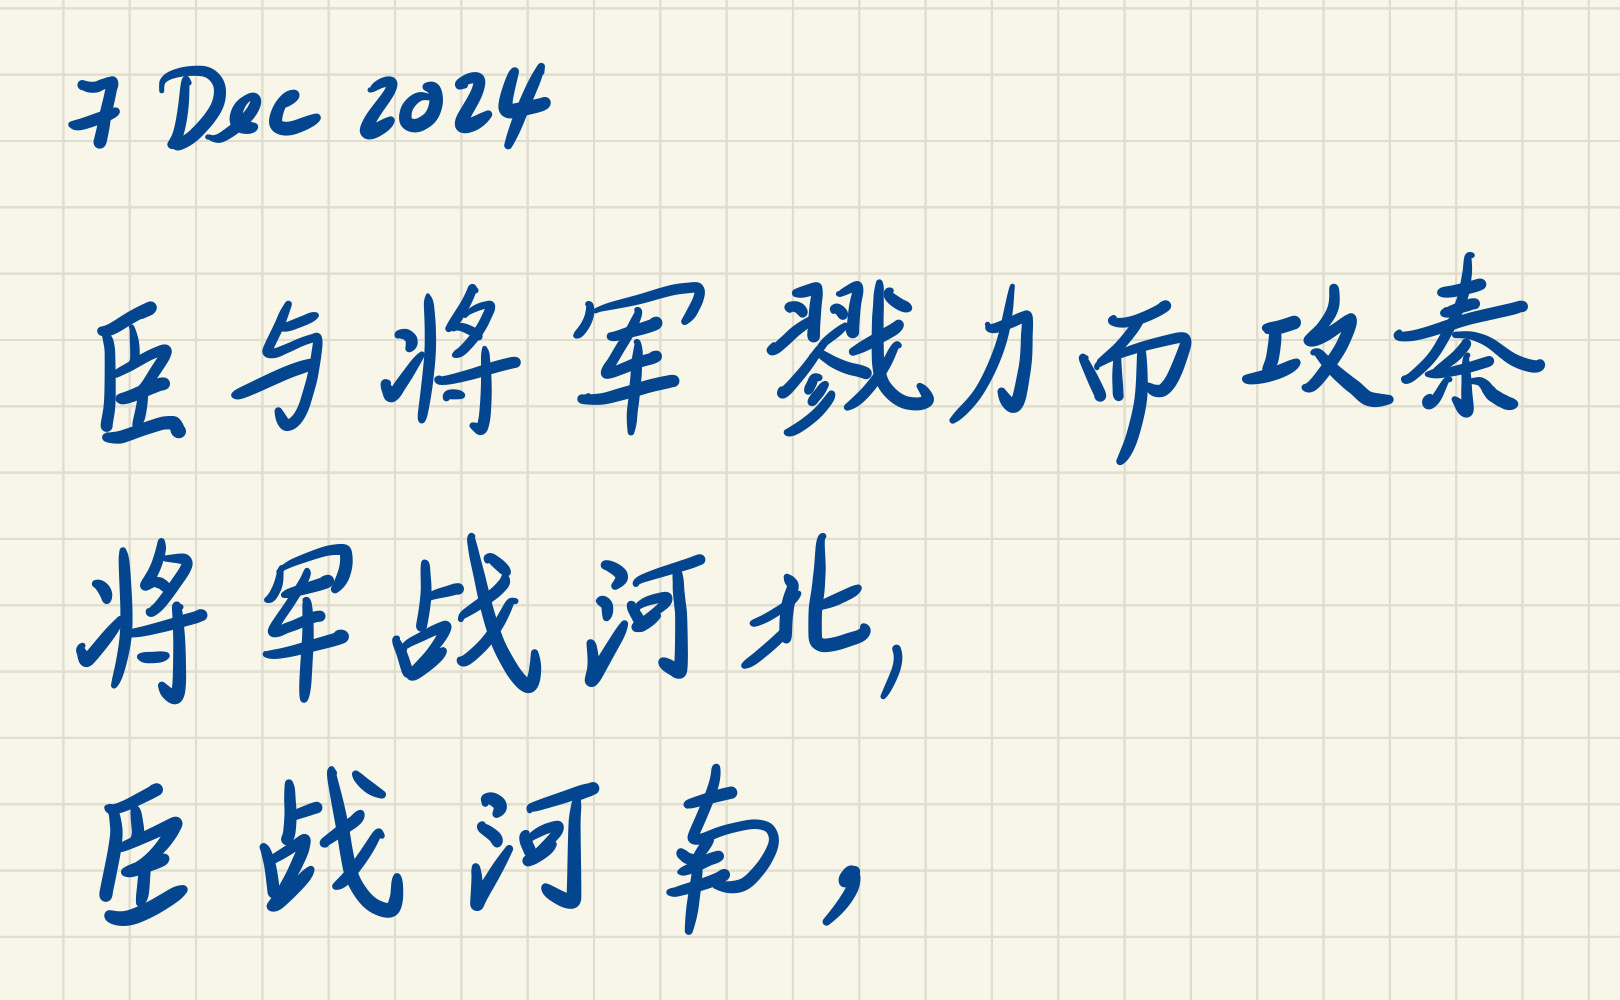 7 Dec 2024
臣与将军戮力而攻秦
将军战河北,
臣战河南,